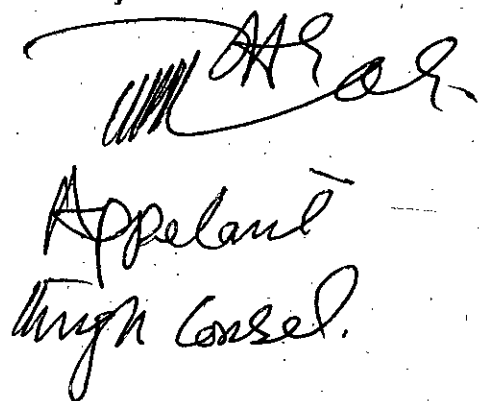 Appelant
through Consel.